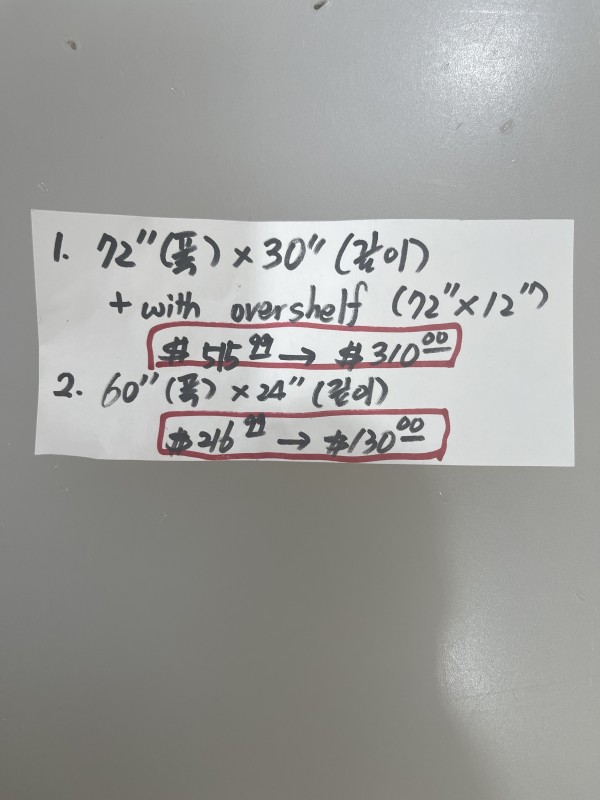 1. 72"(폭) × 30" (깊이)
+ with overshelf (72"×12")
$ 515 99 → $ 310 00
2. 60"(폭) × 24" (깊이)
$ 216 99 → $ 130 00